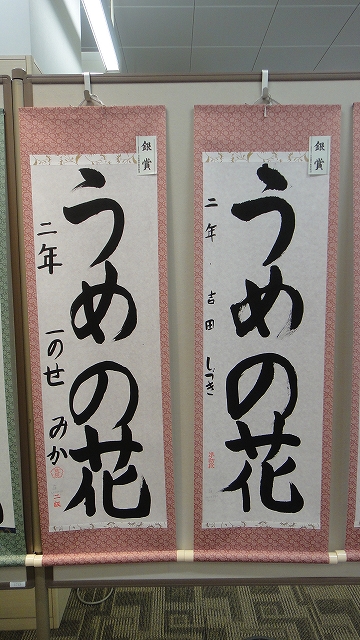 銀賞
うめの花
二年 吉田 しづき
銀賞
うめの花
二年 一のせ みか
二級